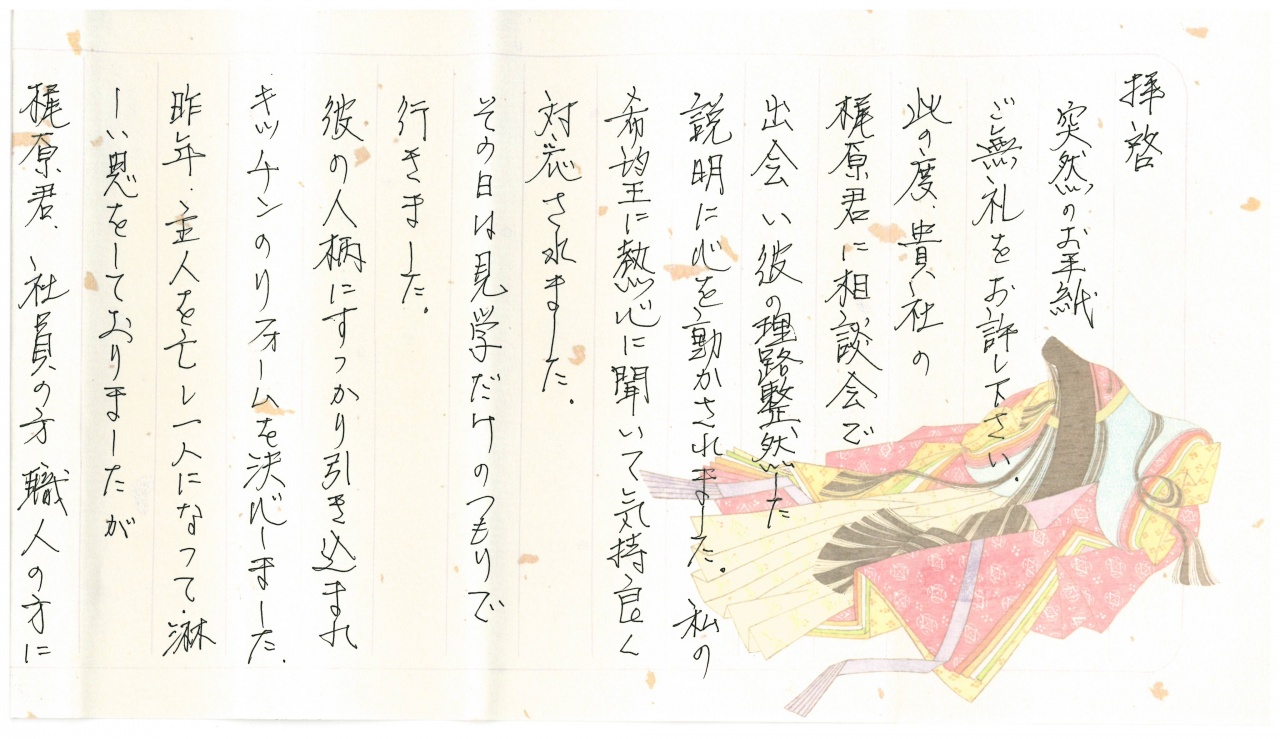 拝啓
突然のお手紙
ご無礼をお許し下さい、
此の度、貴社の
梶原君に相談会で
出会い彼の理路整然した
説明に心を動かされました。私の
希望に熱心に聞いて気持良く
対応されました。
その日は見学だけのつもりで
行きました。
彼の人柄にすっかり引き込まれ
キッチンのリフォームを決心しました。
昨年、主人を亡し一人になって、淋
しい思をしておりましたが
梶原君、社員の方職人の方に